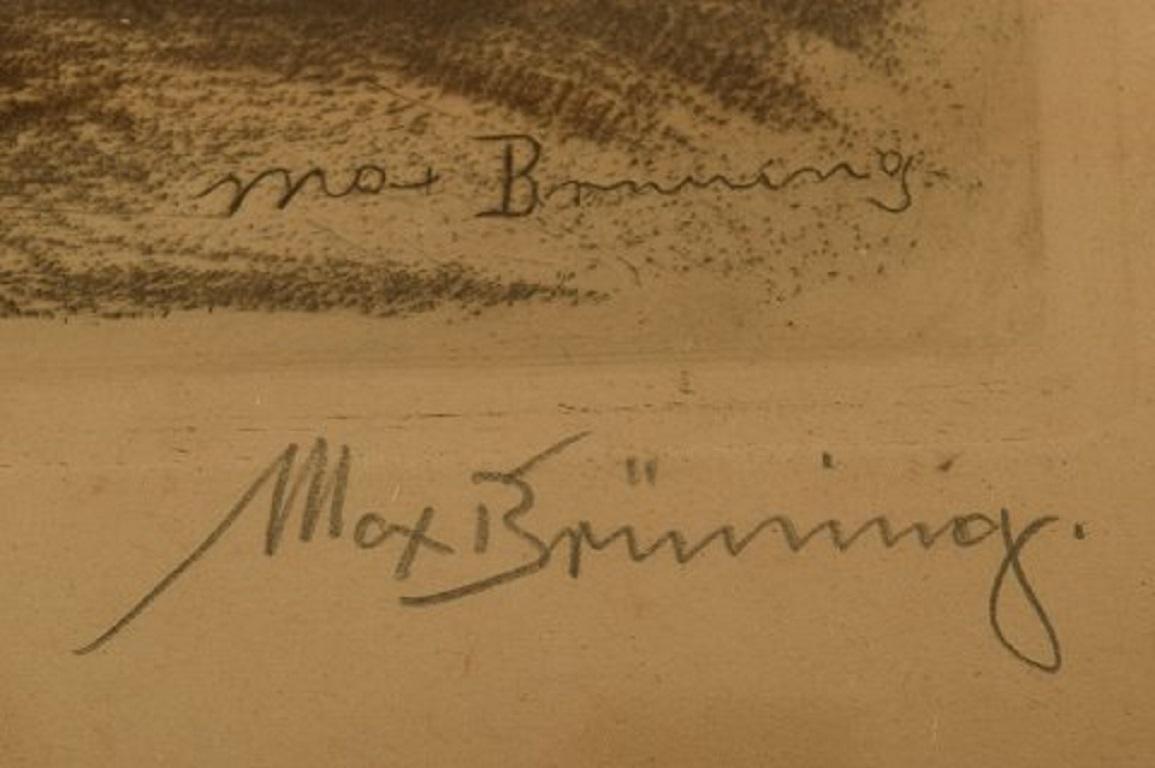 Max Brünning
Max Brünning.